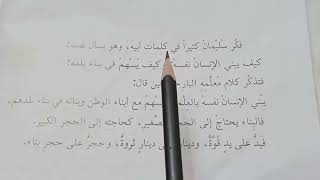 فكّر سليمانُ كثيراً في كلمات أبيه، وهو يسأل نفسه:
كيف يبني الإنسانُ نفسه كيف يُسهمُ في بناء بلده؟
فتذكّر كلام معلّمه البار حين قال:
يبني الإنسانُ نفسَهُ بالعلم يسهم مع أبناء الوطن وبنائه في بناء بلده،
فالبناء يحتاجُ إلى الح الصّغير، كحاجته إلى الحجر الكبير.
فيدٌ على يدٍ قوّةٌ، ودينا دينارٍ ثروةٌ، وحجرٌ على حجرٍ بناء.